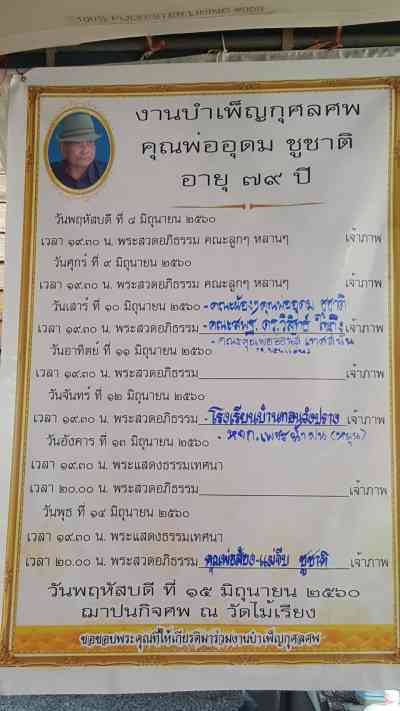 งานบำเพ็ญกุศลศพ
คุณพ่ออุดม ชูชาติ
อายุ ๗๙ ปี
วันพฤหัสบดี ที่ ๘ มิถุนายน ๒๕๖๐
เวลา ๑๙.๓๐ น. พระสวดอภิธรรม คณะลูกๆ หลานๆ เจ้าภาพ
วันศุกร์ ที่ ๙ มิถุนายน ๒๕๖๐
เวลา ๑๙.๓๐ น. พระสวดอภิธรรม คณะลูกๆ หลานๆ เจ้าภาพ
วันเสาร์ ที่ ๑๐ มิถุนายน ๒๕๖๐ -คณะน้องๆคุณพ่ออุดม ชูชาติ
เวลา ๑๙.๓๐ น. พระสวดอภิธรรม -คณะสพฐ. ดร.วิสิทธิ์ เจ้าภาพ
วันอาทิตย์ ที่ ๑๑ มิถุนายน ๒๕๖๐
เวลา ๑๙.๓๐ น. พระสวดอภิธรรม เจ้าภาพ
วันจันทร์ ที่ ๑๒ มิถุนายน ๒๕๖๐
เวลา ๑๙.๓๐ น. พระสวดอภิธรรม -โรงเรียนบ้านควนลำปาง เจ้าภาพ
วันอังคาร ที่ ๑๓ มิถุนายน ๒๕๖๐ - หจก.
เวลา ๑๙.๓๐ น. พระแสดงธรรมเทศนา
เวลา ๒๐.๐๐ น. พระสวดอภิธรรม เจ้าภาพ
วันพุธ ที่ ๑๔ มิถุนายน ๒๕๖๐
เวลา ๑๙.๓๐ น. พระแสดงธรรมเทศนา
เวลา ๒๐.๐๐ น. พระสวดอภิธรรม คุณพ่อ ชูชาติ เจ้าภาพ
วันพฤหัสบดี ที่ ๑๕ มิถุนายน ๒๕๖๐
ฌาปนกิจศพ ณ วัดไม้เรียง
ขอขอบพระคุณที่ให้เกียรติมาร่วมงานบำเพ็ญกุศลศพ